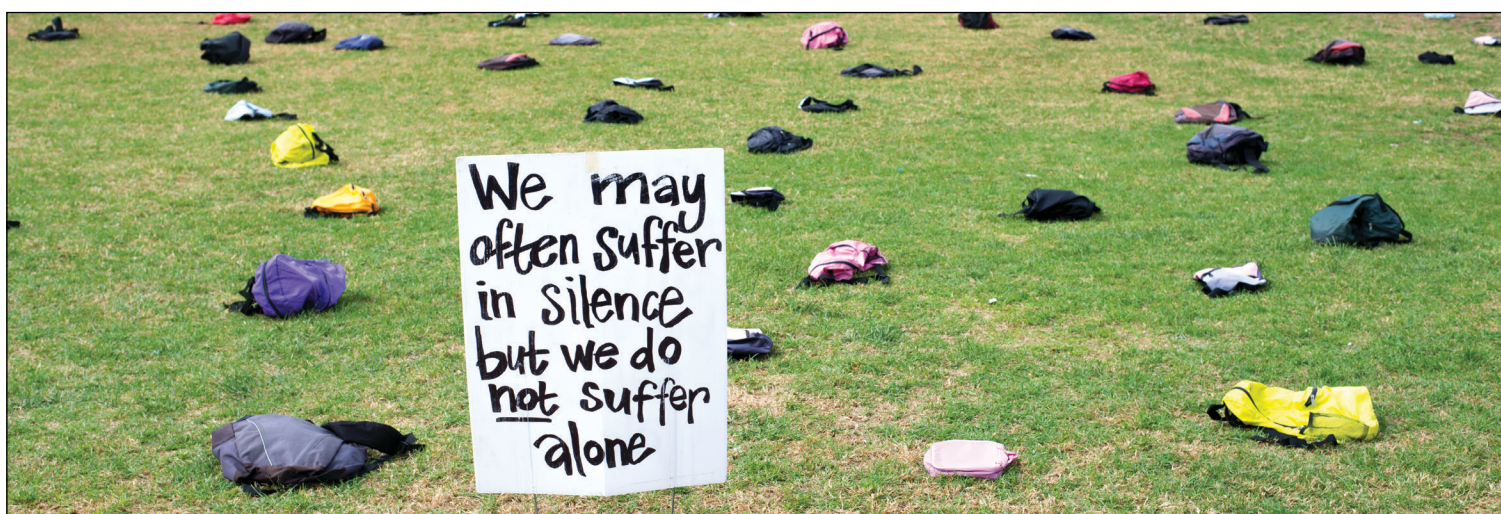 We may
often suffer
in silence
but we do
not suffer
alone